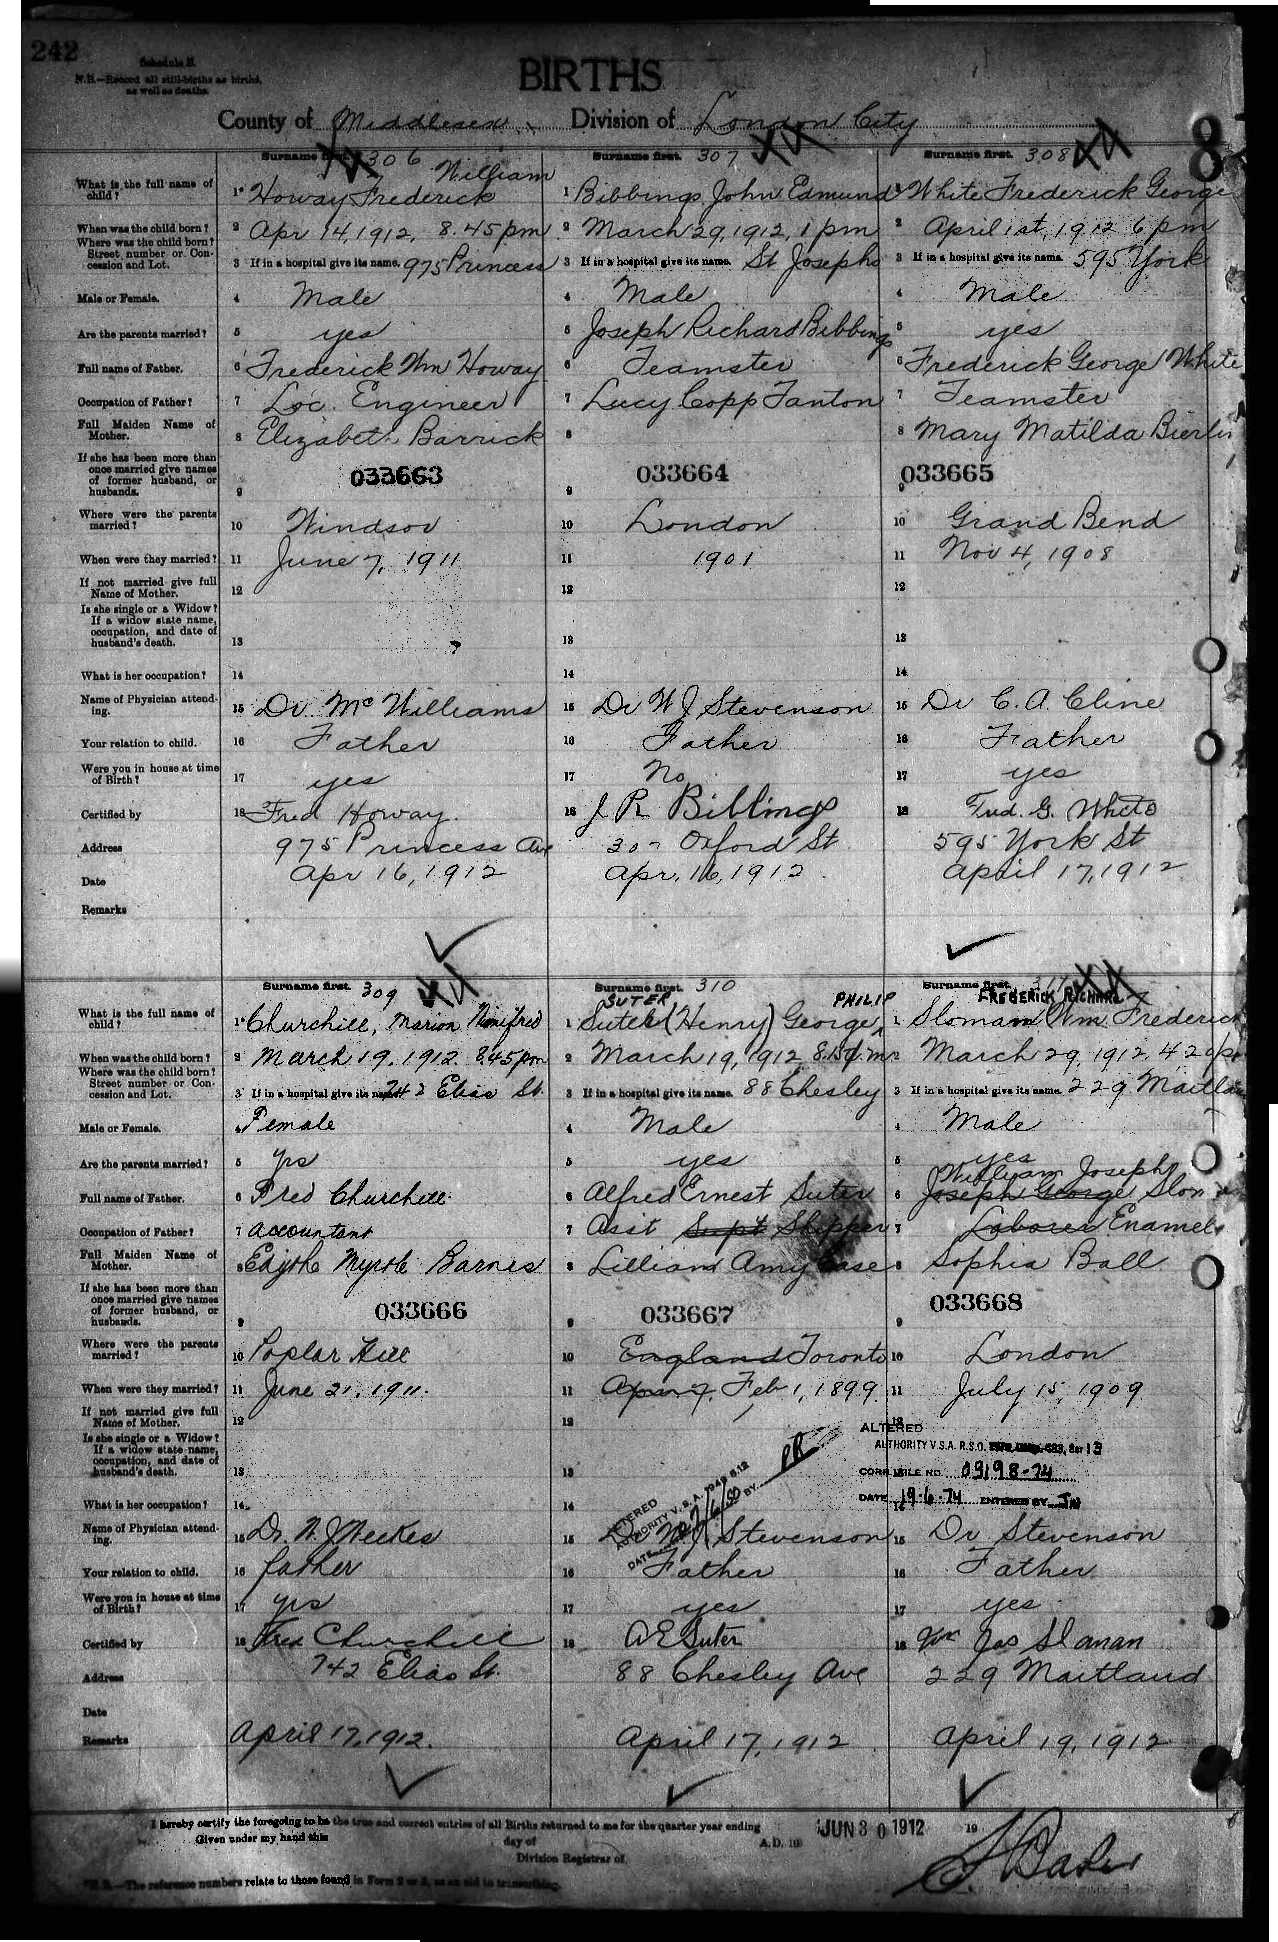 242
Schedule B.
N.B.—Record all still-births as births,
as well as deaths.
BIRTHS
County of Middlesex Division of London City
8
Surname first. 306
Surname first. 307
Surname first. 308
What is the full name of child?
1 Howay Frederick William
1 Bibbings John Edmund
1 White Frederick George
When was the child born?
2 Apr 14, 1912, 8.45 pm
2 March 29, 1912, 1 pm
2 April 1st, 1912 6 pm
Where was the child born? Street number or Concession and Lot.
3 If in a hospital give its name. 975 Princess
3 If in a hospital give its name. St Josephs
3 If in a hospital give its name. 595 York
Male or Female.
4 Male
4 Male
4 Male
Are the parents married?
5 yes
5 Joseph Richard Bibbings
5 yes
Full name of Father.
6 Frederick Wm Howay
6 Teamster
6 Frederick George White
Occupation of Father?
7 Loc. Engineer
7 Lucy Copp Tanton
7 Teamster
Full Maiden Name of Mother.
8 Elizabeth Barrick
8
8 Mary Matilda
If she has been more than once married give names of former husband, or husbands.
033663
033664
033665
9
9
9
Where were the parents married?
10 Windsor
10 London
10 Grand Bend
When were they married?
11 June 7, 1911
11 1901
11 Nov 4, 1908
If not married give full Name of Mother.
12
12
12
Is she single or a Widow? If a widow state name, occupation, and date of husband's death.
13
13
13
What is her occupation?
14
14
14
Name of Physician attending.
15 Dr McWilliams
15 Dr W J Stevenson
15 Dr C. A. Cline
Your relation to child.
16 Father
16 Father
16 Father
Were you in house at time of Birth?
17 yes
17 No
17 yes
Certified by
18 Fred Howay.
18 J R Bibbings
18 Fred. G. White
Address
975 Princess Ave
Oxford St
595 York St
Date
Apr 16, 1912
Apr, 16, 1912
April 17, 1912
Remarks
Surname first. 309
Surname first. 310
Surname first.
What is the full name of child?
1 Churchill, Marion Winifred
SUTER PHILIP
1 (Henry) George
FREDERICK RICHARD
1 Sloman (Wm Frederick
When was the child born?
2 March 19, 1912 8.45 pm
2 March 19, 1912 8.15 p.m
2 March 29, 1912, 4.20 pm
Where was the child born? Street number or Concession and Lot.
3 If in a hospital give its name. 742 Elias St.
3 If in a hospital give its name. 88 Chesley
3 If in a hospital give its name. 229 Maitland
Male or Female.
4 Female
4 Male
4 Male
Are the parents married?
5 yes
5 yes
5 yes
Full name of Father.
6 Fred Churchill
6 Alfred Ernest Suter
William Joseph
6 Joseph George Sloman
Occupation of Father?
7 accountant
7 Asst Supt Shipper
7 Laborer Enamel
Full Maiden Name of Mother.
8 Edythe Myrtle Barnes
8 Lillian Amy Case
8 Sophia Ball
If she has been more than once married give names of former husband, or husbands.
033666
033667
033668
9
9
9
Where were the parents married?
10 Poplar Hill
10 England Toronto
10 London
When were they married?
11 June 21, 1911.
11 Feb 1, 1899
11 July 15, 1909
If not married give full Name of Mother.
12
12
12
Is she single or a Widow? If a widow state name, occupation, and date of husband's death.
13
13
13
ALTERED
AUTHORITY V.S.A. 1948 S.12
DATE BY PR
ALTERED
AUTHORITY V.S.A. R.S.O. Sec 13
CORR FILE NO. 09198-74
DATE 19-6-74 ENTERED BY
What is her occupation?
14
14
14
Name of Physician attending.
15 Dr. W. J. Weekes
15 Dr W J Stevenson
15 Dr Stevenson
Your relation to child.
16 father
16 Father
16 Father
Were you in house at time of Birth?
17 yes
17 yes
17 yes
Certified by
18 Fred Churchill
18 A E Suter
18 Wm Jas Sloman
Address
742 Elias St.
88 Chesley Ave
229 Maitland
Date
Remarks
April 17, 1912.
April 17, 1912
April 19, 1912
I hereby certify the foregoing to be the true and correct entries of all Births returned to me for the quarter year ending JUN 30 1912 19
Given under my hand this day of A.D. 19
Division Registrar of
N.B.—The reference numbers relate to those found in Form 2 or 3, as an aid to transcribing.